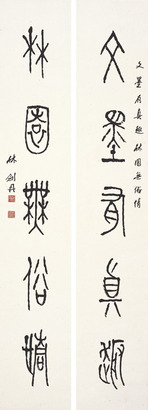 文墨有真趣林園無俗情
文墨有真趣
林園無俗情
林劍丹